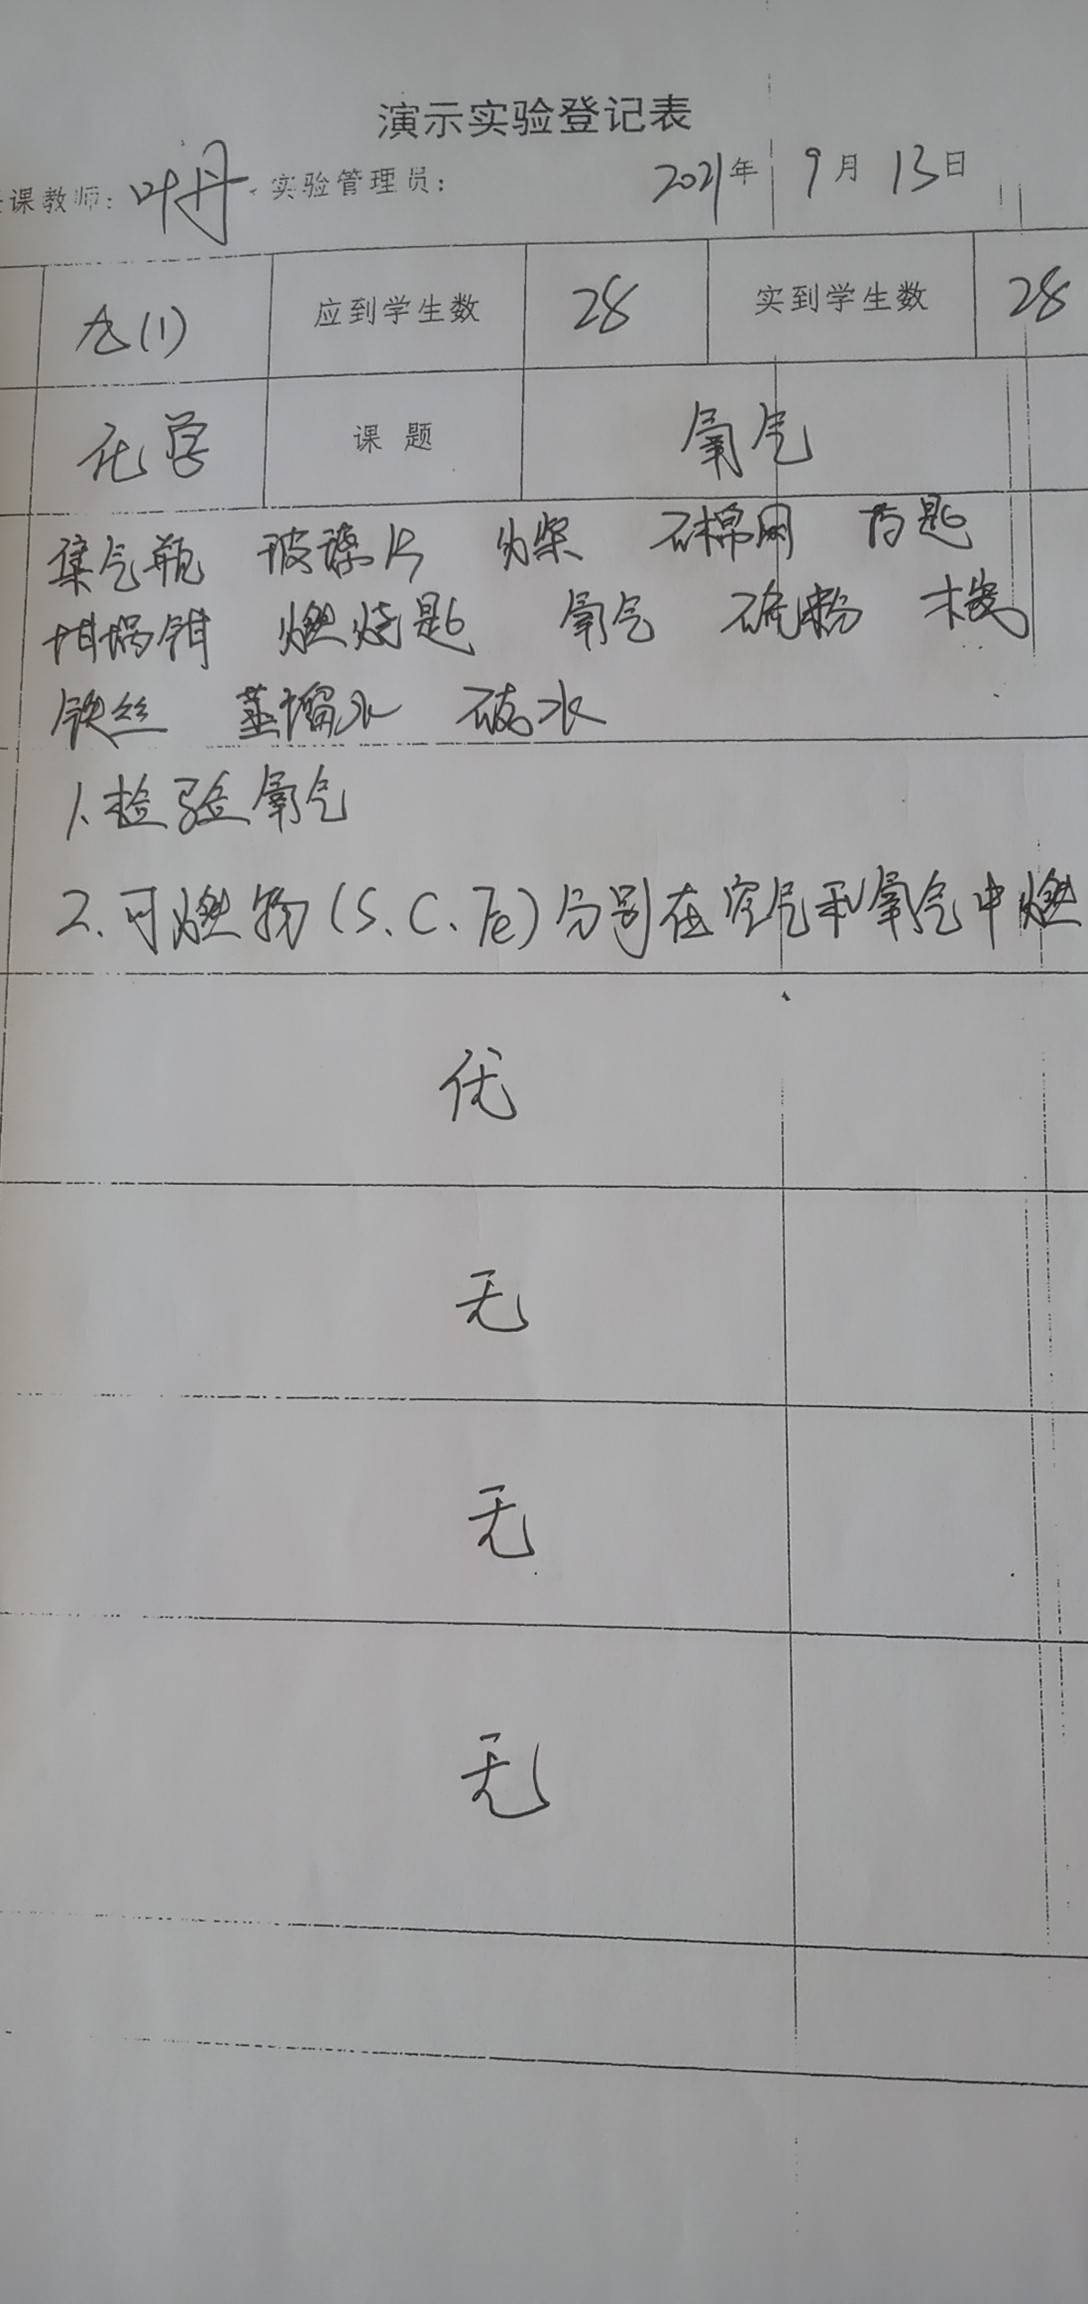 演示实验登记表
课教师：叶丹 实验管理员： 2021年 9月 13日
九(1) 应到学生数 28 实到学生数 28
化学 课题 氧气
集气瓶 玻璃片 火柴 石棉网 药匙
坩埚钳 燃烧匙 氧气 硫粉 木炭
铁丝 蒸馏水 
1.检验氧气
2.可燃物(S、C、Fe)分别在空气和氧气中燃
优
无
无
无